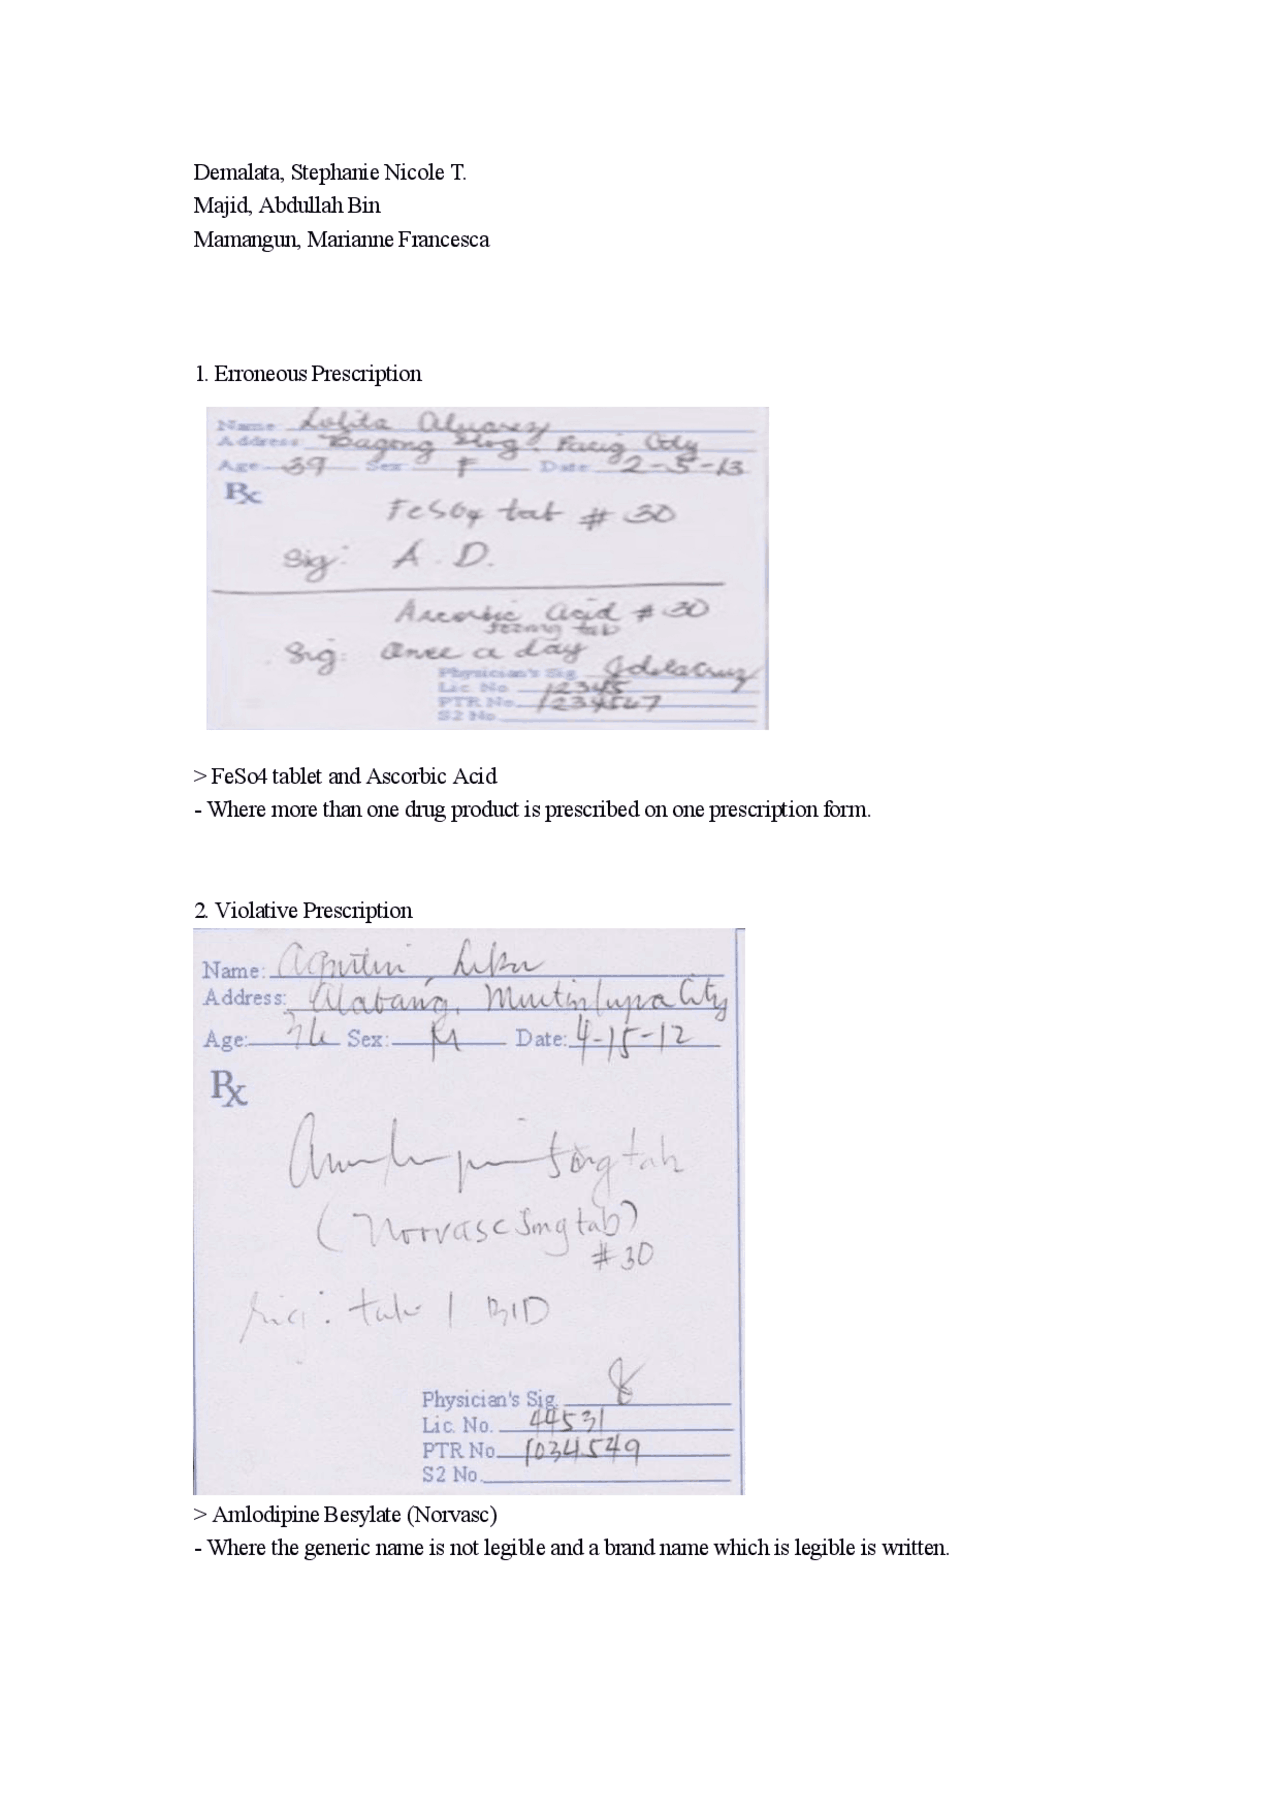 Demalata, Stephanie Nicole T.
Majid, Abdullah Bin
Mamangun, Marianne Francesca
1. Erroneous Prescription
Name Lolita Alvarez
Address Bagong Ilog, Pasig City
Age 39 Sex F Date 2-5-13
Rx
FeSO4 tab # 30
Sig: A.D.
Ascorbic Acid # 30
tab
Sig: once a day
Physician's Sig Jdelacruz
Lic No 12345
PTR No. 1234567
S2 No
> FeSo4 tablet and Ascorbic Acid
- Where more than one drug product is prescribed on one prescription form.
2. Violative Prescription
Name:
Address: Alabang, Muntinlupa City
Age: Sex: M Date: 4-15-12
Rx
tab
(Norvasc 5mg tab)
# 30
Sig: tab 1 BID
Physician's Sig.
Lic. No. 44531
PTR No. 1034549
S2 No.
> Amlodipine Besylate (Norvasc)
- Where the generic name is not legible and a brand name which is legible is written.